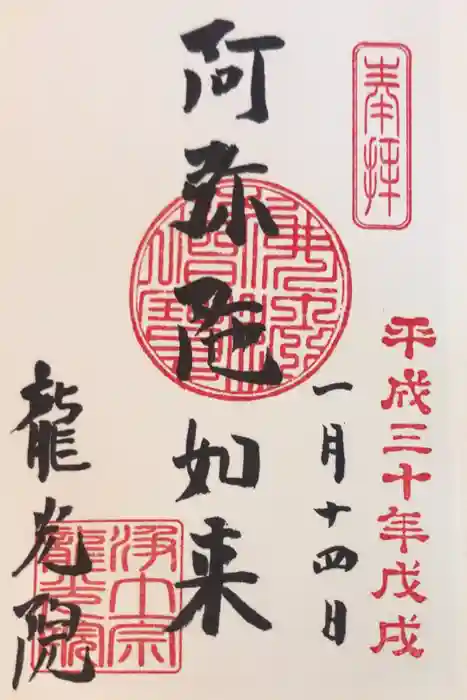 奉拝
平成三十年戊戌
一月十四日
阿弥陀如来
龍光院
浄土宗
龍光院